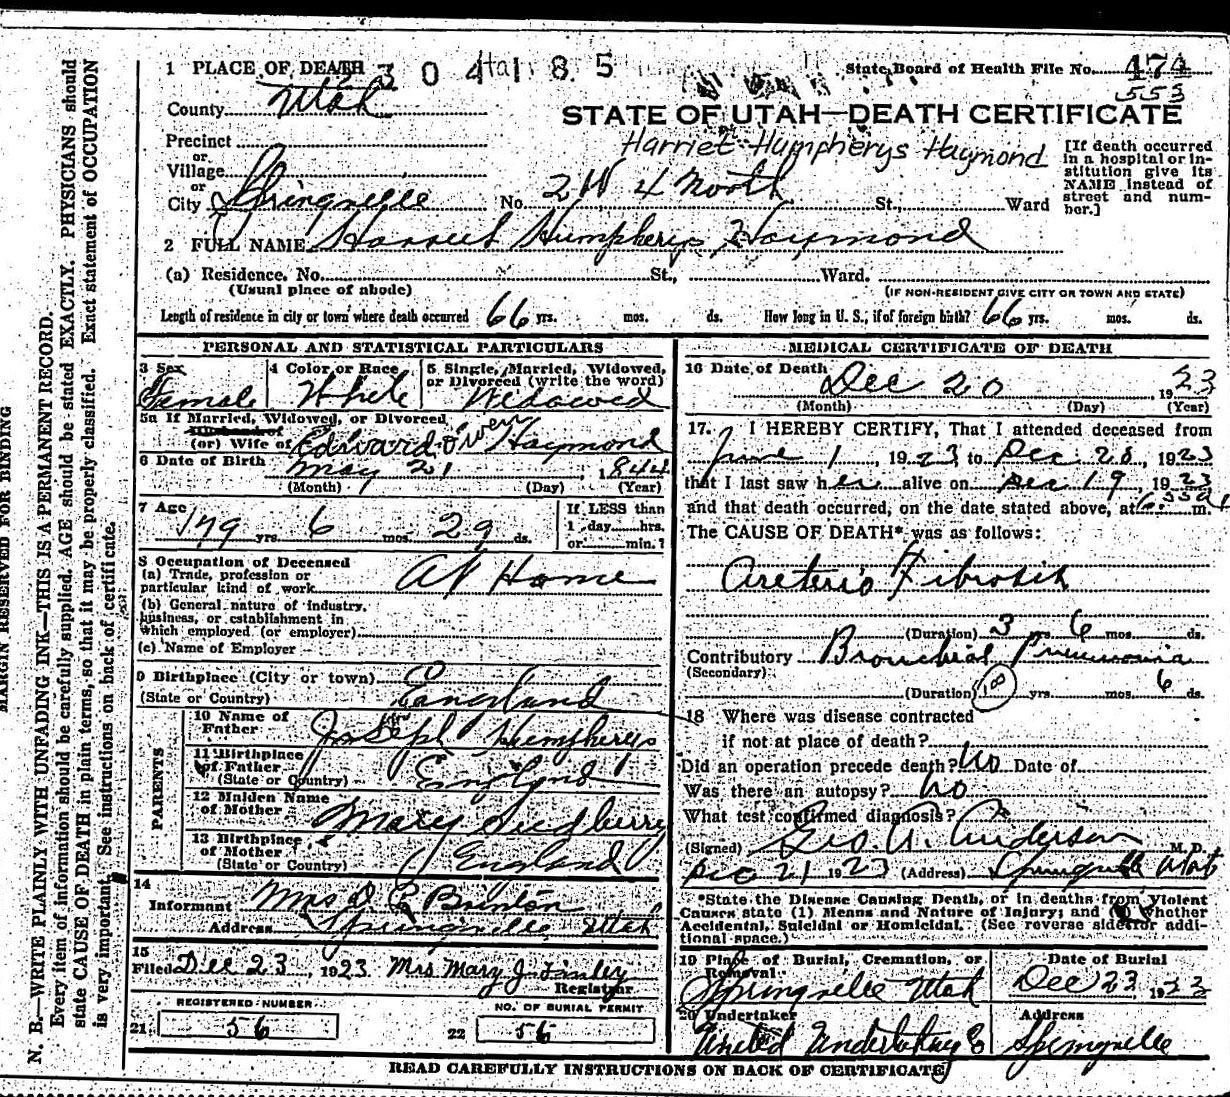 1 PLACE OF DEATH 2304185 State Board of Health File No. 474
County Utah 553
STATE OF UTAH—DEATH CERTIFICATE
Harriet Humpherys Haymond
Precinct
or
Village
or
City Springville No. 2 W 4 North St., Ward
[If death occurred in a hospital or institution give its NAME instead of street and number.]
2 FULL NAME Harriet Humpherys Haymond
(a) Residence. No. St., Ward.
(Usual place of abode) (IF NON-RESIDENT GIVE CITY OR TOWN AND STATE)
Length of residence in city or town where death occurred 66 yrs. mos. ds. How long in U. S., if of foreign birth? 66 yrs. mos. ds.
PERSONAL AND STATISTICAL PARTICULARS
3 Sex Female
4 Color or Race White
5 Single, Married, Widowed, or Divorced (write the word) Widowed
5a If Married, Widowed, or Divorced
(or) Wife of Edward Owen Haymond
6 Date of Birth May 21, 1844
(Month) (Day) (Year)
7 Age 79 yrs. 6 mos. 29 ds.
If LESS than
1 day hrs.
or min.?
8 Occupation of Deceased
(a) Trade, profession or
particular kind of work At Home
(b) General nature of industry,
business, or establishment in
which employed (or employer)
(c) Name of Employer
9 Birthplace (City or town)
(State or Country) England
PARENTS
10 Name of
Father Joseph Humpherys
11 Birthplace
of Father
(State or Country) England
12 Maiden Name
of Mother Mary
13 Birthplace
of Mother
(State or Country) England
14
Informant Mrs D. C. Brinton
Address Springville Utah
15
Filed Dec 23, 1923. Mrs Mary J. Finley
Registrar
REGISTERED NUMBER
21 56
NO. OF BURIAL PERMIT
22 56
MEDICAL CERTIFICATE OF DEATH
16 Date of Death Dec 20 1923
(Month) (Day) (Year)
17. I HEREBY CERTIFY, That I attended deceased from
June 1, 1923 to Dec 20, 1923
that I last saw her alive on Dec 19, 1923
and that death occurred, on the date stated above, at m.
The CAUSE OF DEATH* was as follows:
Areterio Fibrosis
(Duration) 3 yrs 6 mos. ds.
Contributory Bronchial Pneumonia
(Secondary)
(Duration) 100 yrs. mos. 6 ds.
18 Where was disease contracted
if not at place of death?
Did an operation precede death? No Date of
Was there an autopsy? No
What test confirmed diagnosis?
(Signed) Geo. A. Anderson M. D.
Dec 21 1923 (Address) Springville Utah
*State the Disease Causing Death, or in deaths from Violent
Causes state (1) Means and Nature of Injury; and (2) whether
Accidental, Suicidal or Homicidal. (See reverse side for addi-
tional space.)
19 Place of Burial, Cremation, or
Removal
Springville Utah
Date of Burial
Dec 23 1923
20 Undertaker
United Undertaking Co
Address
Springville
READ CAREFULLY INSTRUCTIONS ON BACK OF CERTIFICATE
MARGIN RESERVED FOR BINDING
N. B.—WRITE PLAINLY WITH UNFADING INK—THIS IS A PERMANENT RECORD.
Every item of information should be carefully supplied. AGE should be stated EXACTLY. PHYSICIANS should
state CAUSE OF DEATH in plain terms, so that it may be properly classified. Exact statement of OCCUPATION
is very important. See instructions on back of certificate.